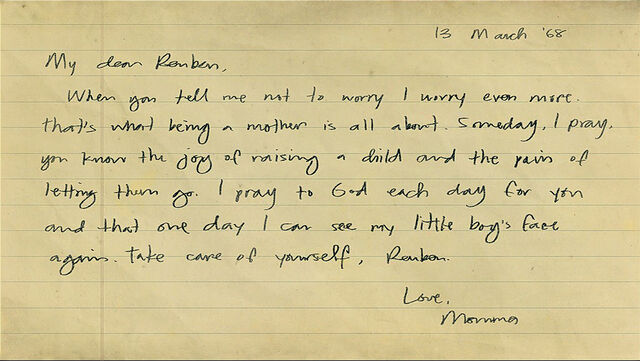 13 March '68
My dear Reuben,
When you tell me not to worry I worry even more.
that's what being a mother is all about. Someday, I pray,
you know the joy of raising a child and the pain of
letting them go. I pray to God each day for you
and that one day I can see my little boy's face
again. Take care of yourself, Reuben.
Love,
Momma